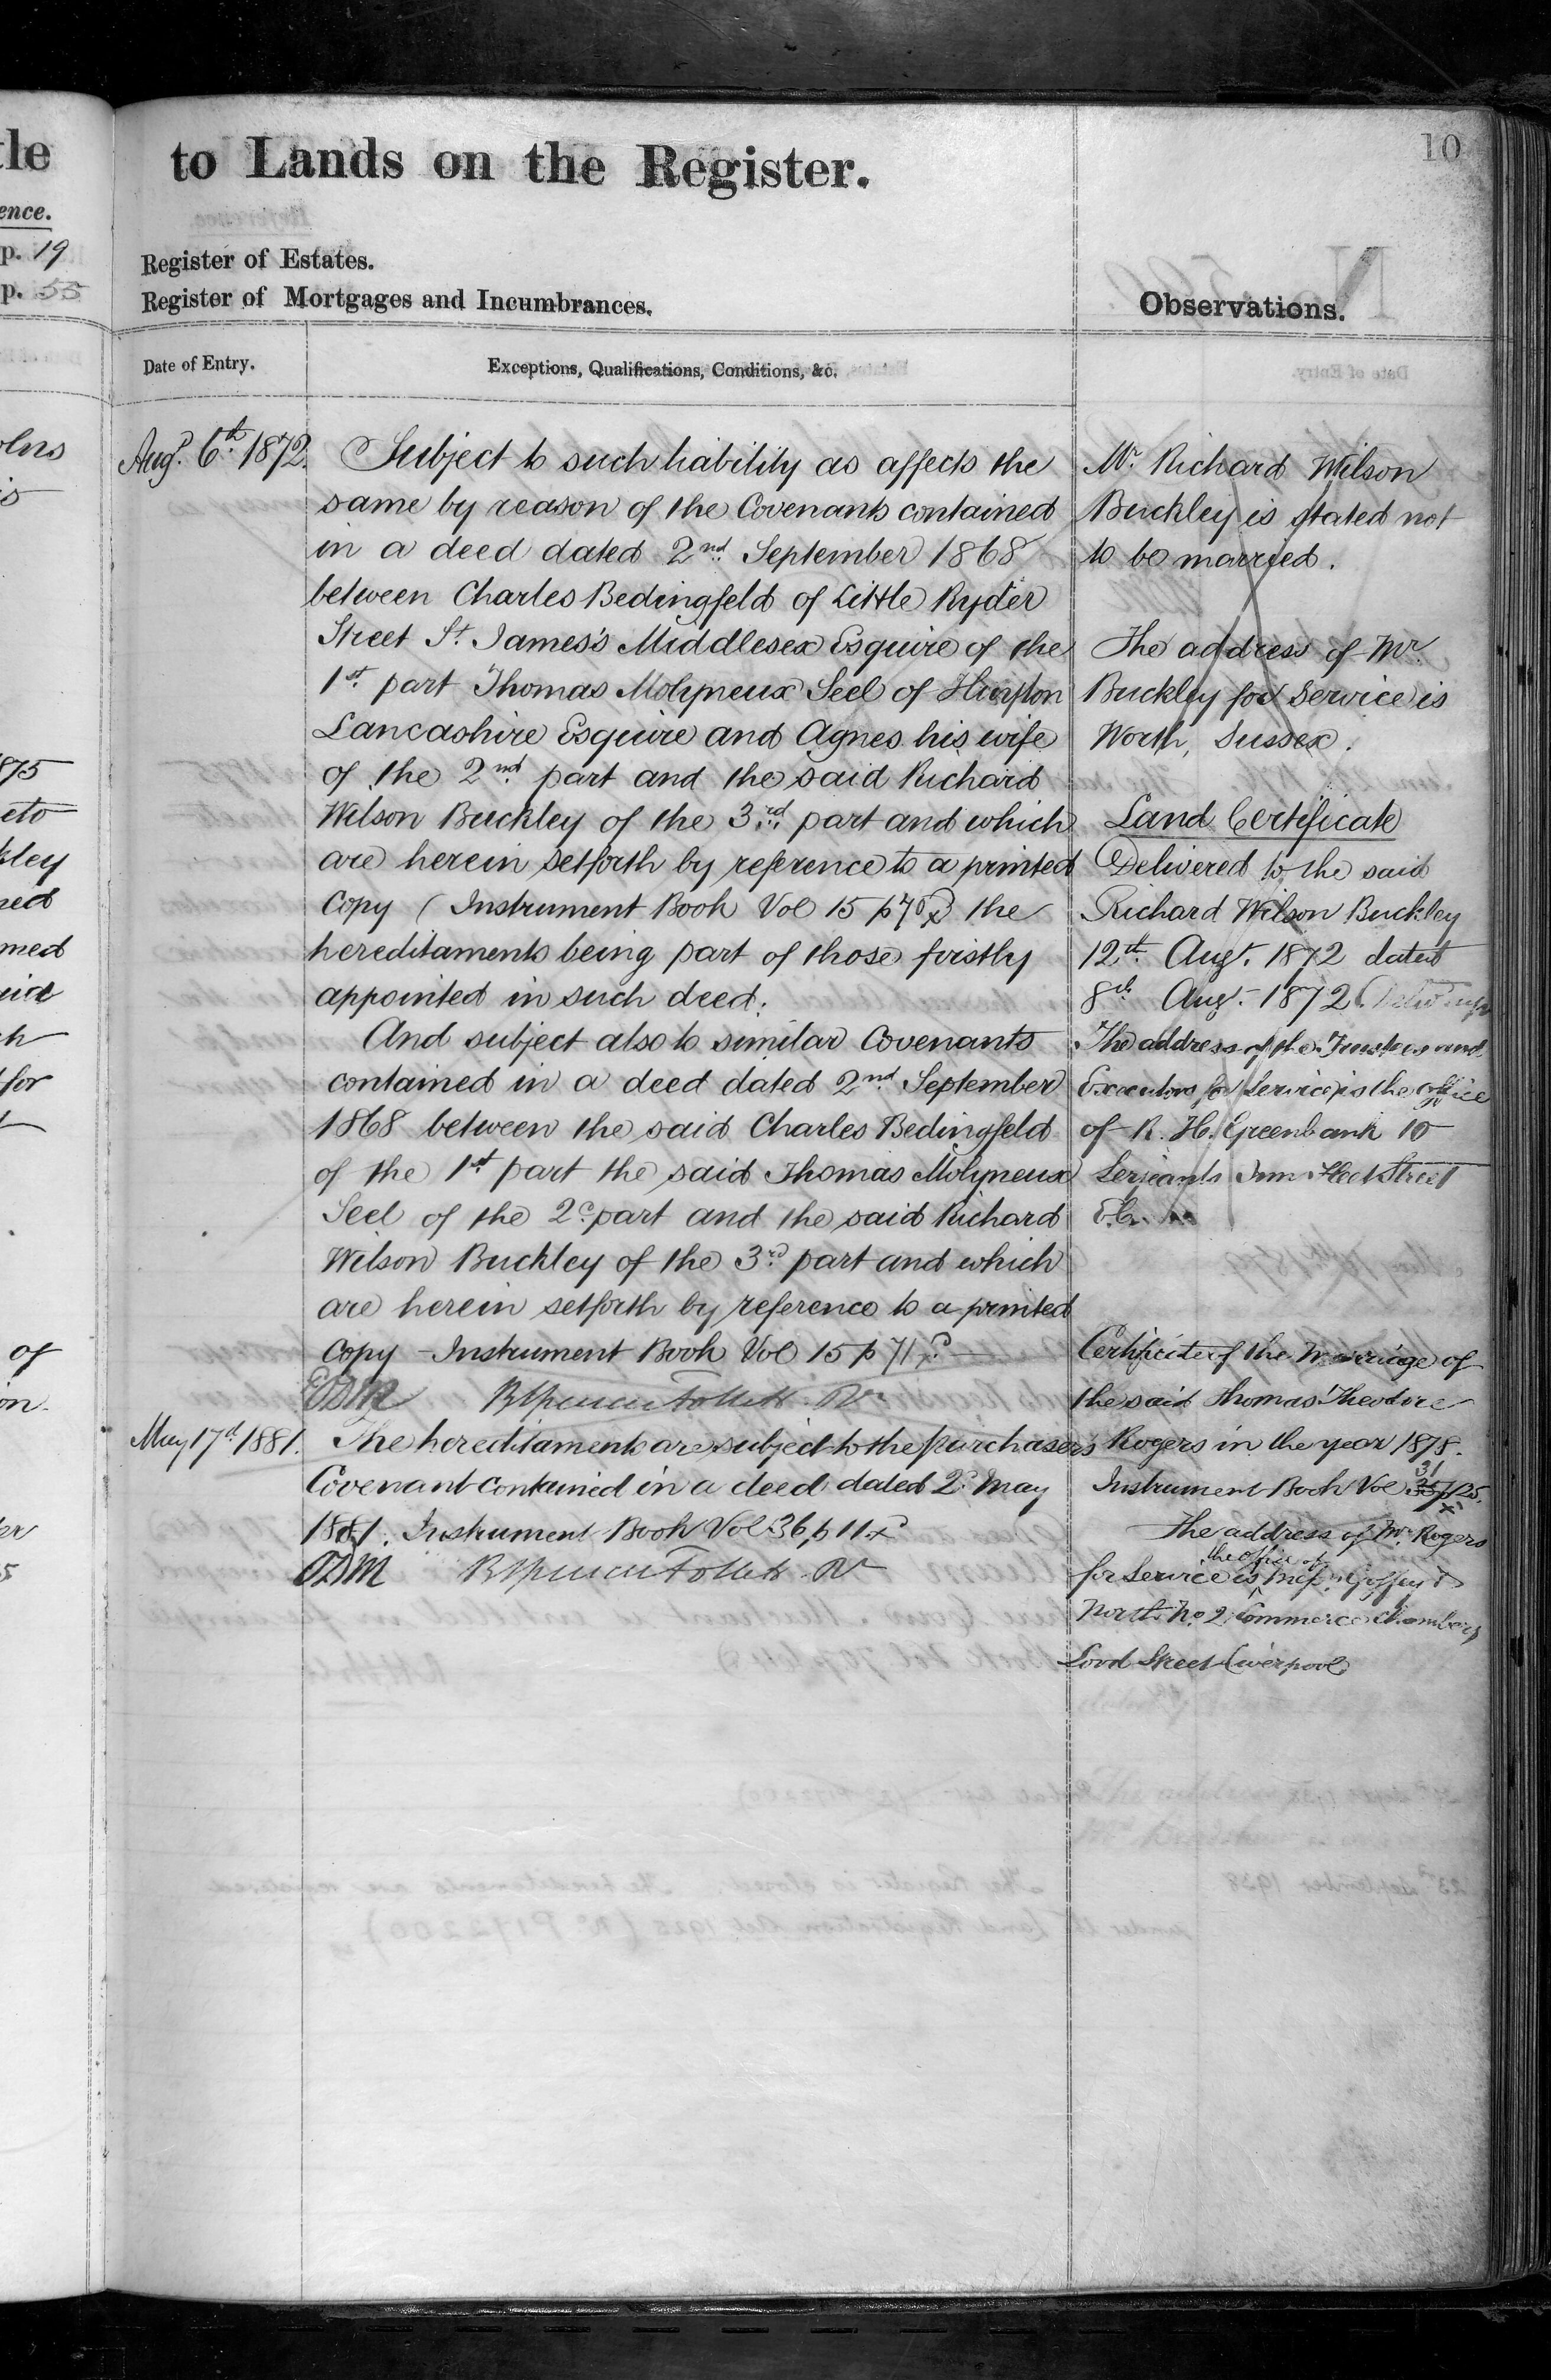 tle
ence.
p. 19
p. 55
to Lands on the Register.
10
Register of Estates.
Register of Mortgages and Incumbrances.
Observations.
Date of Entry.
Exceptions, Qualifications, Conditions, &c.
Augt. 6th. 1872.
Subject to such liability as affects the
same by reason of the Covenants contained
in a deed dated 2nd. September 1868
between Charles Bedingfeld of Little Ryder
Street St. James's Middlesex Esquire of the
1st. part Thomas Molyneux Seel of Huyton
Lancashire Esquire and Agnes his wife
of the 2nd. part and the said Richard
Wilson Buckley of the 3rd. part and which
are herein setforth by reference to a printed
copy (Instrument Book Vol 15 p 70) the
hereditaments being part of those firstly
appointed in such deed.
And subject also to similar Covenants
contained in a deed dated 2nd. September
1868 between the said Charles Bedingfeld
of the 1st. part the said Thomas Molyneux
Seel of the 2d. part and the said Richard
Wilson Buckley of the 3rd. part and which
are herein setforth by reference to a printed
copy - Instrument Book Vol 15 p 71
May 17th 1881.
The hereditaments are subject to the purchaser's
Covenant contained in a deed dated 2d. May
1881. Instrument Book Vol 36 p 11
Mr. Richard Wilson
Buckley is stated not
to be married.
The address of Mr.
Buckley for Service is
Worth, Sussex.
Land Certificate
Delivered to the said
Richard Wilson Buckley
12th. Augt. 1872 dated
8th. Augt. 1872
The address of the Trustees and
Executors for Service is the office
of R. H. Greenbank 10
Serjeants Inn Fleet Street
E.C.
Certificate of the Marriage of
the said Thomas Theodore
Rogers in the year 1878.
Instrument Book Vol 31 p 125.
The address of Mr. Rogers
for Service is the office of
North No. 2 Commerce Chambers
Lord Street Liverpool